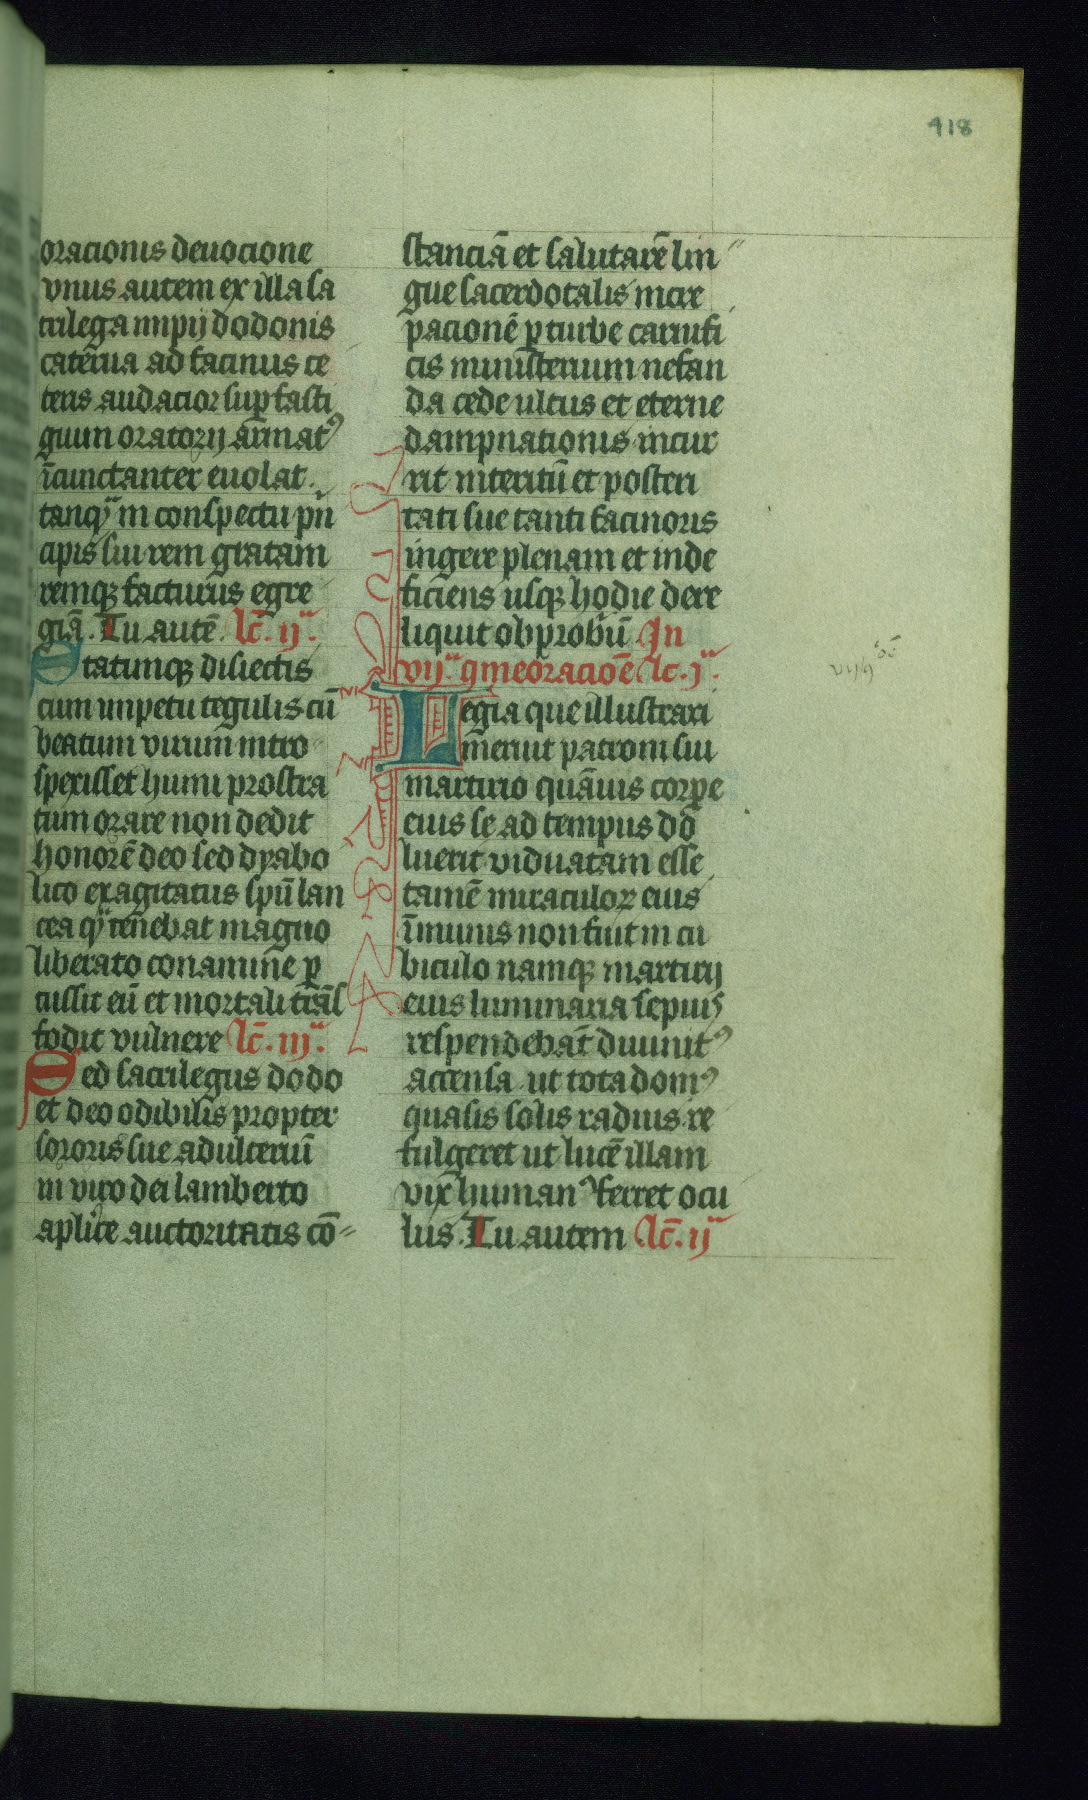 418
oracionis deuocione
vnus autem ex illa sa
crilega impij dodonis
caterua ad facinus ce
teris audacior sup fasti
gium oratorij armatꝰ
ĩcunctanter euolat.
tanqͣ in conspectu pͥn
cipis sui rem gratam
remqꝫ facturus egre
giã. Tu autẽ. lc̃. ijᵃ.
Statimqꝫ disiectis
cum impetu tegulis cũ
beatum virum intro
spexisset humi prostra
tum orare non dedit
honorẽ deo sed dyabo
lico exagitatus spũ lan
cea qͣ tenebat magno
liberato conamine ꝑ
cussit eũ et mortali trãs
fodit vulnere lc̃. iijᵃ.
Sed sacrilegus dodo
et deo odibilis propter
sororis sue adulteriũ
in viro dei lamberto
aplice auctoritatis cõ=
stanciã et salutarẽ lin
gue sacerdotalis incre
pacionẽ ꝑ turbe carnifi
cis ministerium nefan
da cede ultus et eterne
dampnationis incur
rit interitũ et posteri
tati sue tanti facinoris
ingere plenam et inde
ficiens usqꝫ hodie dere
liquit obprobriũ. In
vijᵃ. qmeoracioẽ lc. jᵃ.
Legia que illustrari
meruit patroni sui
martirio quãuis corꝑe
eius se ad tempus do
luerit viduatam esse
tamẽ miraculoꝝ eius
ĩmunis non fuit in cu
biculo namqꝫ martirij
eius luminaria sepiuˢ
respendebãt diuinitꝰ
accensa ut tota domꝰ
quasis solis radius re
fulgeret ut lucẽ illam
vix humanꝰ ferret ocu
lus. Tu autem lc̃. ijᵃ